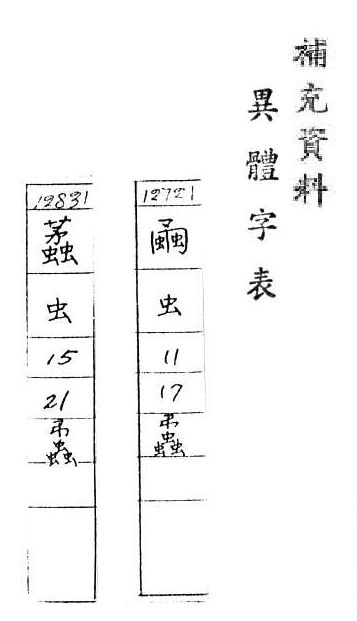 補充資料
異體字表
12721
虫
11
17
12831
虫
15
21